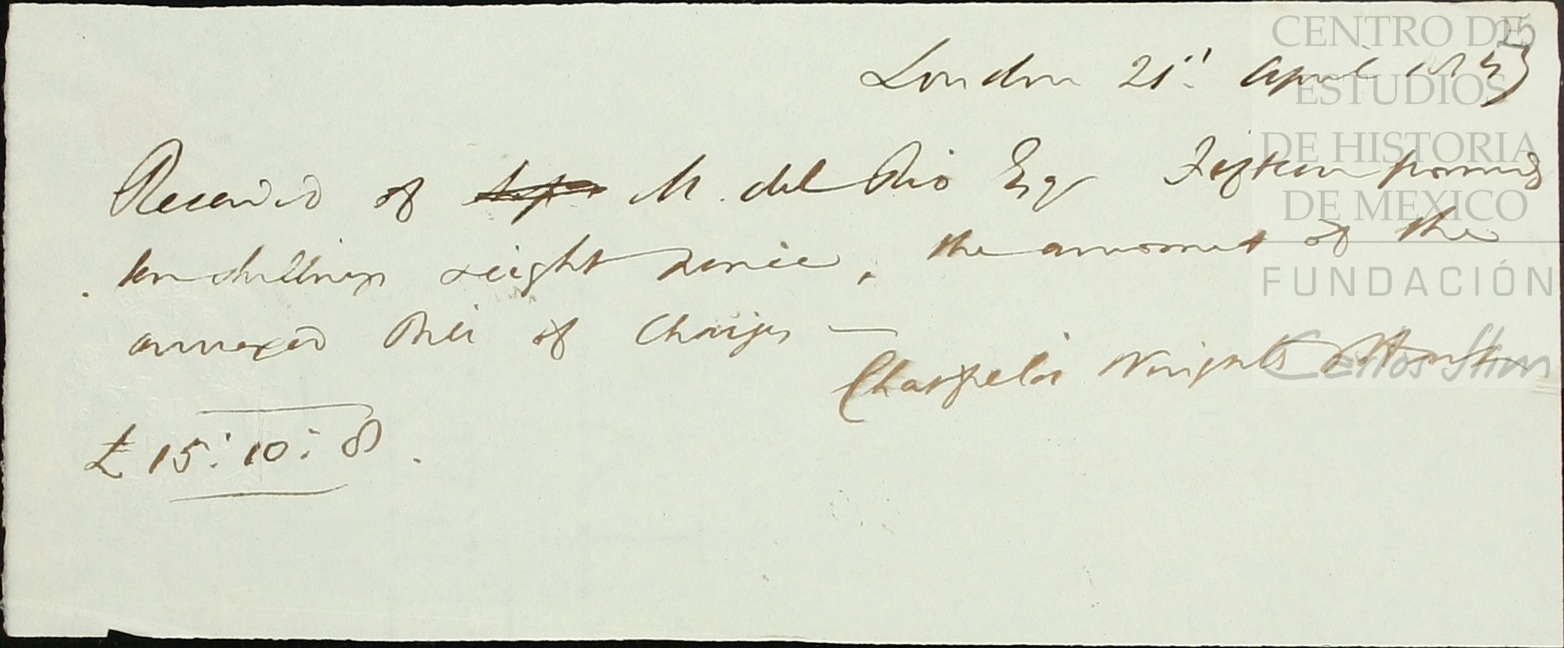 25
London 21st April
Received of M. del Rio Esq Fifteen pounds
ten shillings & eight pence, the amount of the
annexed Bill of Charges —
£ 15:10:8.
CENTRO DE
ESTUDIOS
DE HISTORIA
DE MEXICO
FUNDACIÓN
Carlos Slim